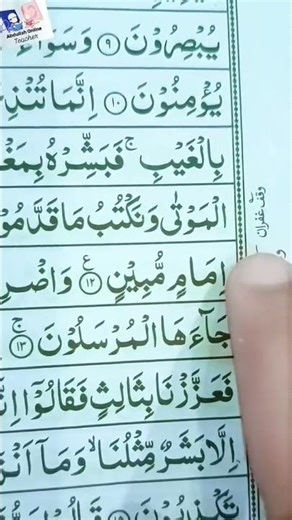 Abdullah Online
Teacher
يُبْصِرُوْنَ ﴿۹﴾ وَسَوَآءٌ
يُؤْمِنُوْنَ ﴿۱۰﴾ اِنَّمَا تُنْذِ
بِالْغَيْبِ ۚ فَبَشِّرْهُ بِمَغْ
الْمَوْتٰى وَنَكْتُبُ مَا قَدَّمُوْ
وقف غفران
اِمَامٍ مُّبِيْنٍ ﴿۱۲﴾ ع وَاضْرِ
جَآءَهَا الْمُرْسَلُوْنَ ﴿۱۳﴾ ج
فَعَزَّزْنَا بِثَالِثٍ فَقَالُوْٓا اِنَّ
اِلَّا بَشَرٌ مِّثْلُنَا ۙ وَمَآ اَنْزَ
تَكْذِبُوْنَ ﴿۱۵﴾ قَالُوْا